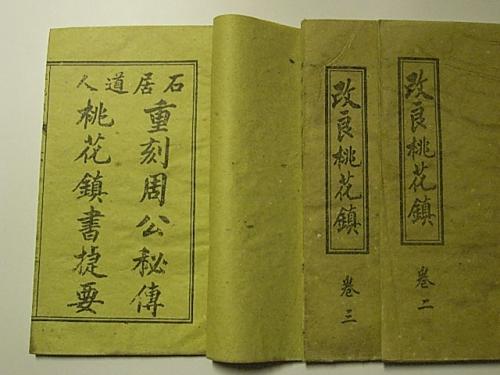 石居道人
重刻周公秘傳
桃花鎮書捷要
改良桃花鎮
卷三
改良桃花鎮
卷二